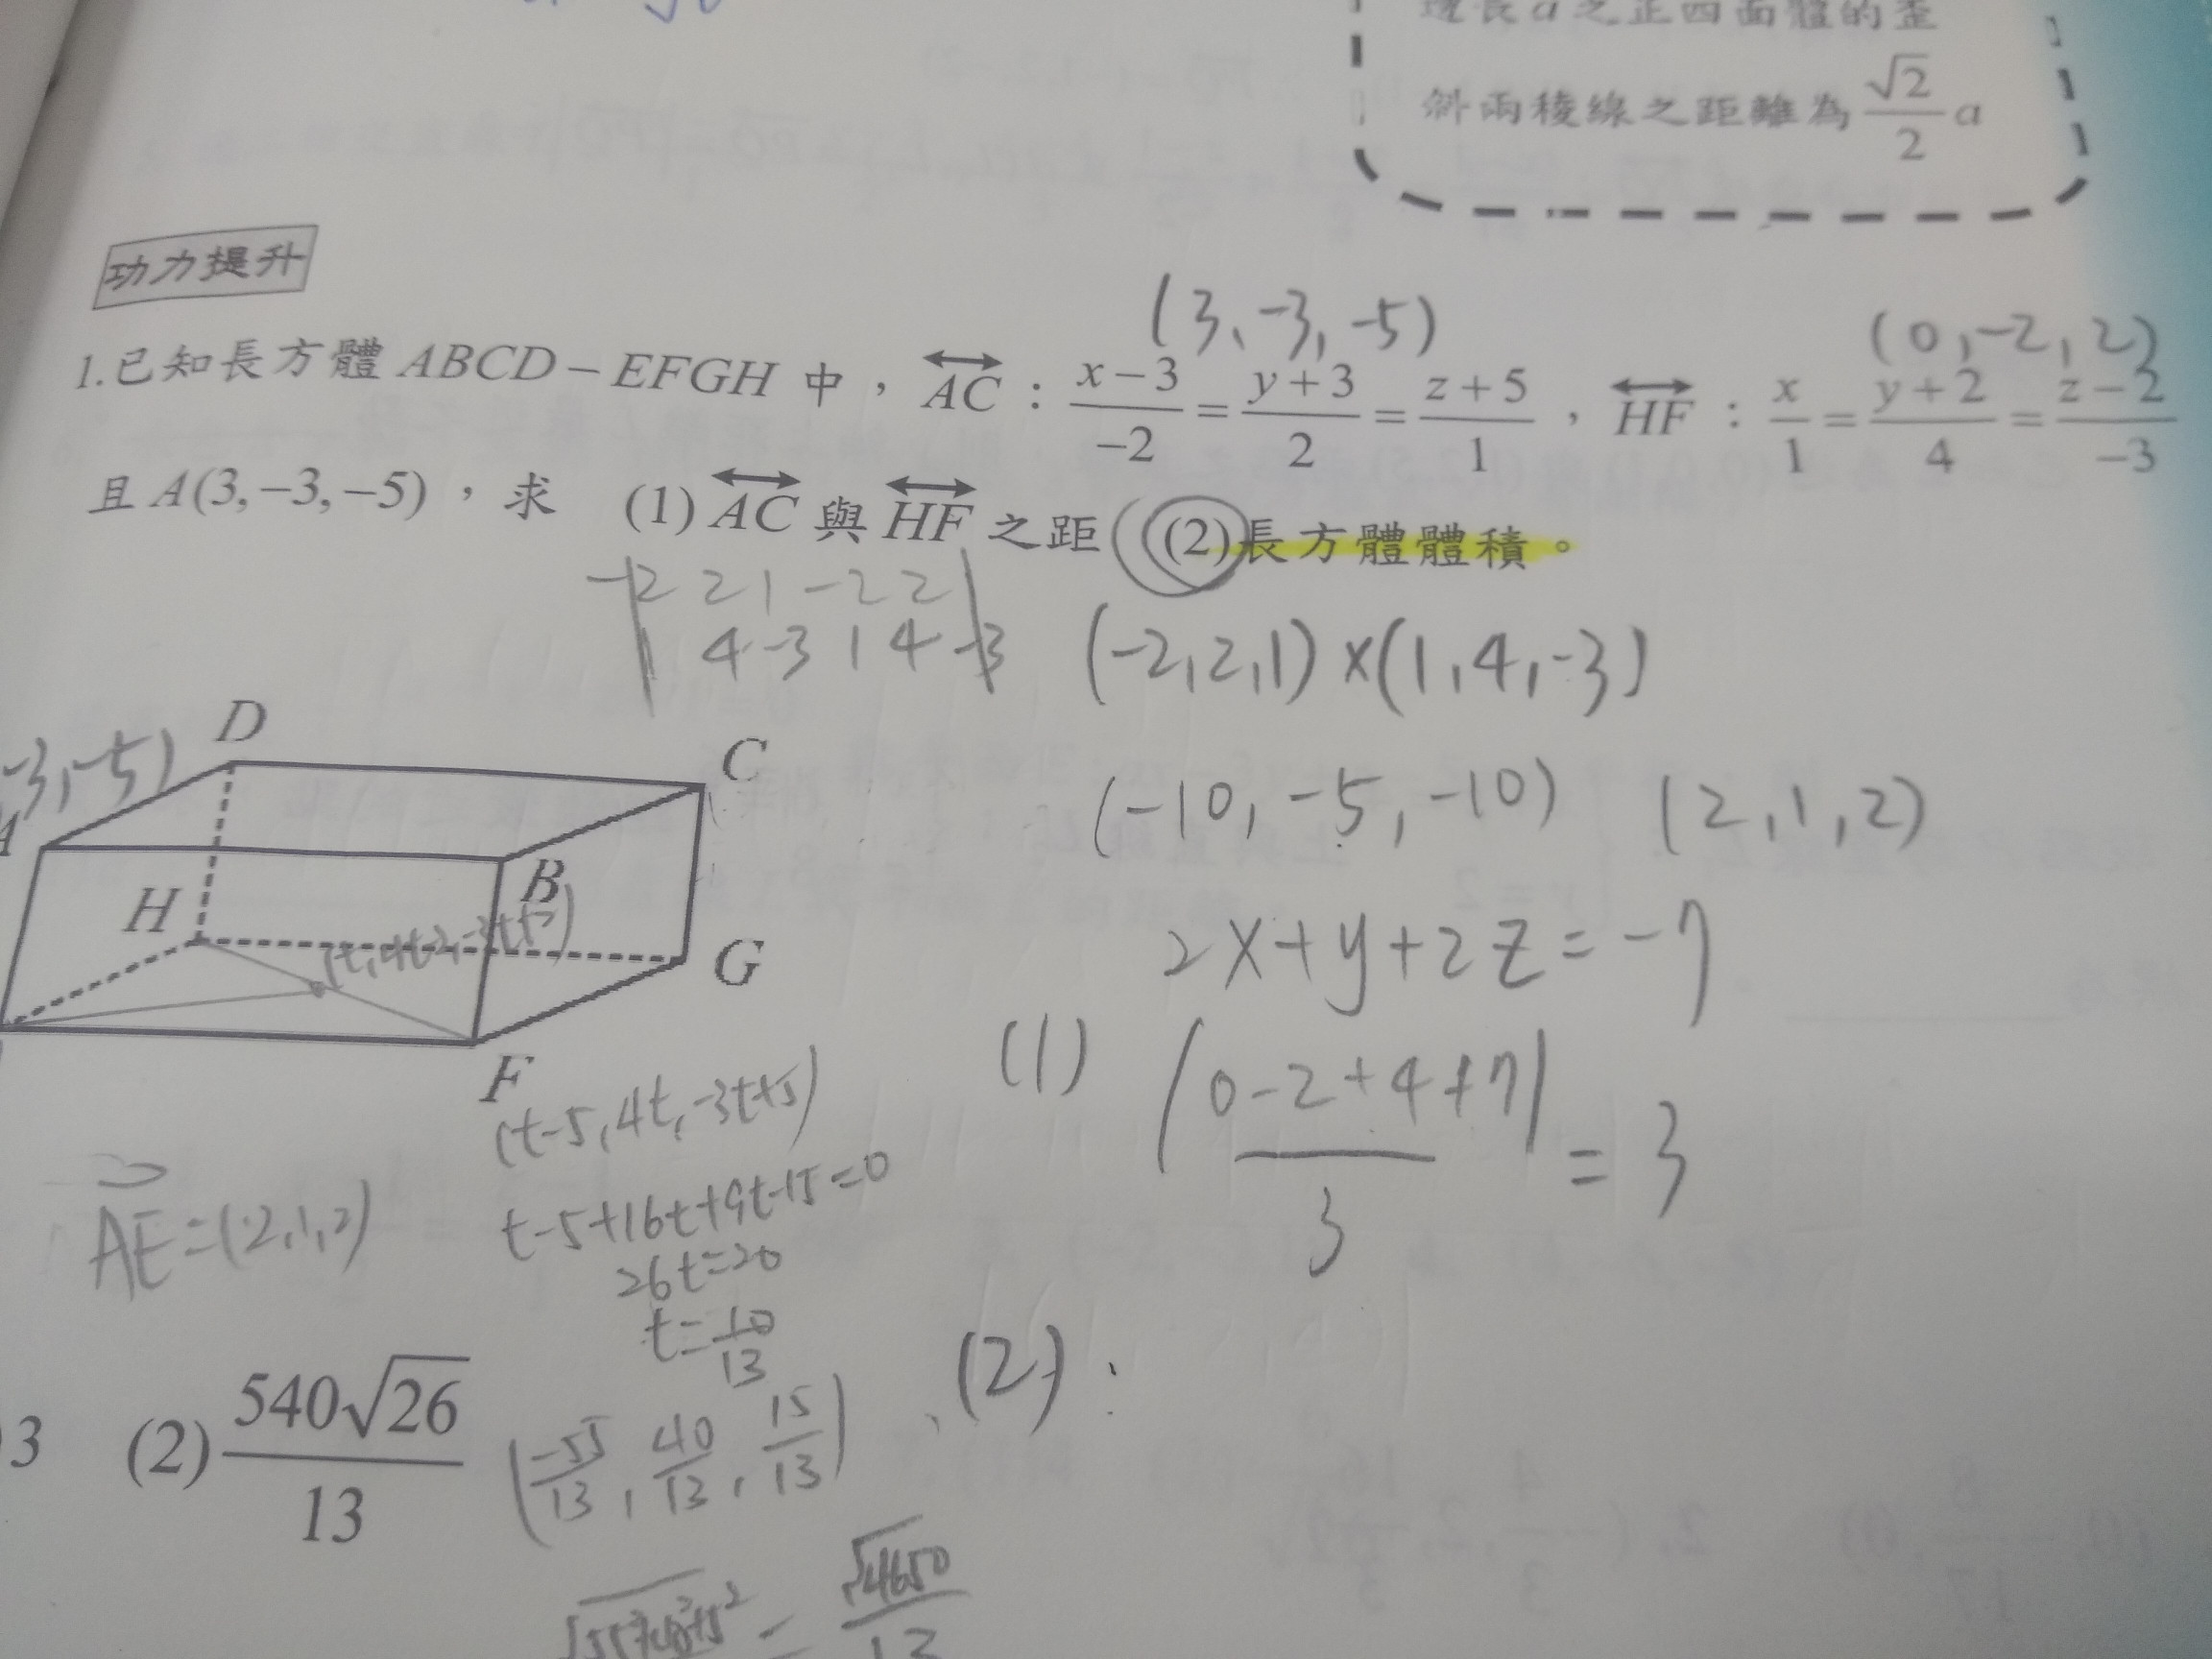 邊長a之正四面體的歪
斜兩稜線之距離為 √2/2 a
功力提升
(3,-3,-5)
(0,-2,2)
1.已知長方體 ABCD-EFGH 中，AC：(x-3)/-2=(y+3)/2=(z+5)/1，HF：x/1=(y+2)/4=(z-2)/-3
且 A(3,-3,-5)，求 (1) AC 與 HF 之距 (2)長方體體積。
-2 2 1 -2 2
1 4 -3 1 4 -3
(-2,2,1)×(1,4,-3)
(-10,-5,-10) (2,1,2)
2x+y+2z=-7
(1) |0-2+4+7|/3 = 3
-3,-5)
D
C
A
B
H
(t,4t-2,-3t+2)
G
F
(t-5,4t,-3t+5)
AE=(2,1,2)
t-5+16t+9t-15=0
26t=20
t=10/13
(2):
3 (2) 540√26/13
(-55/13, 40/13, 15/13)
√4650/13